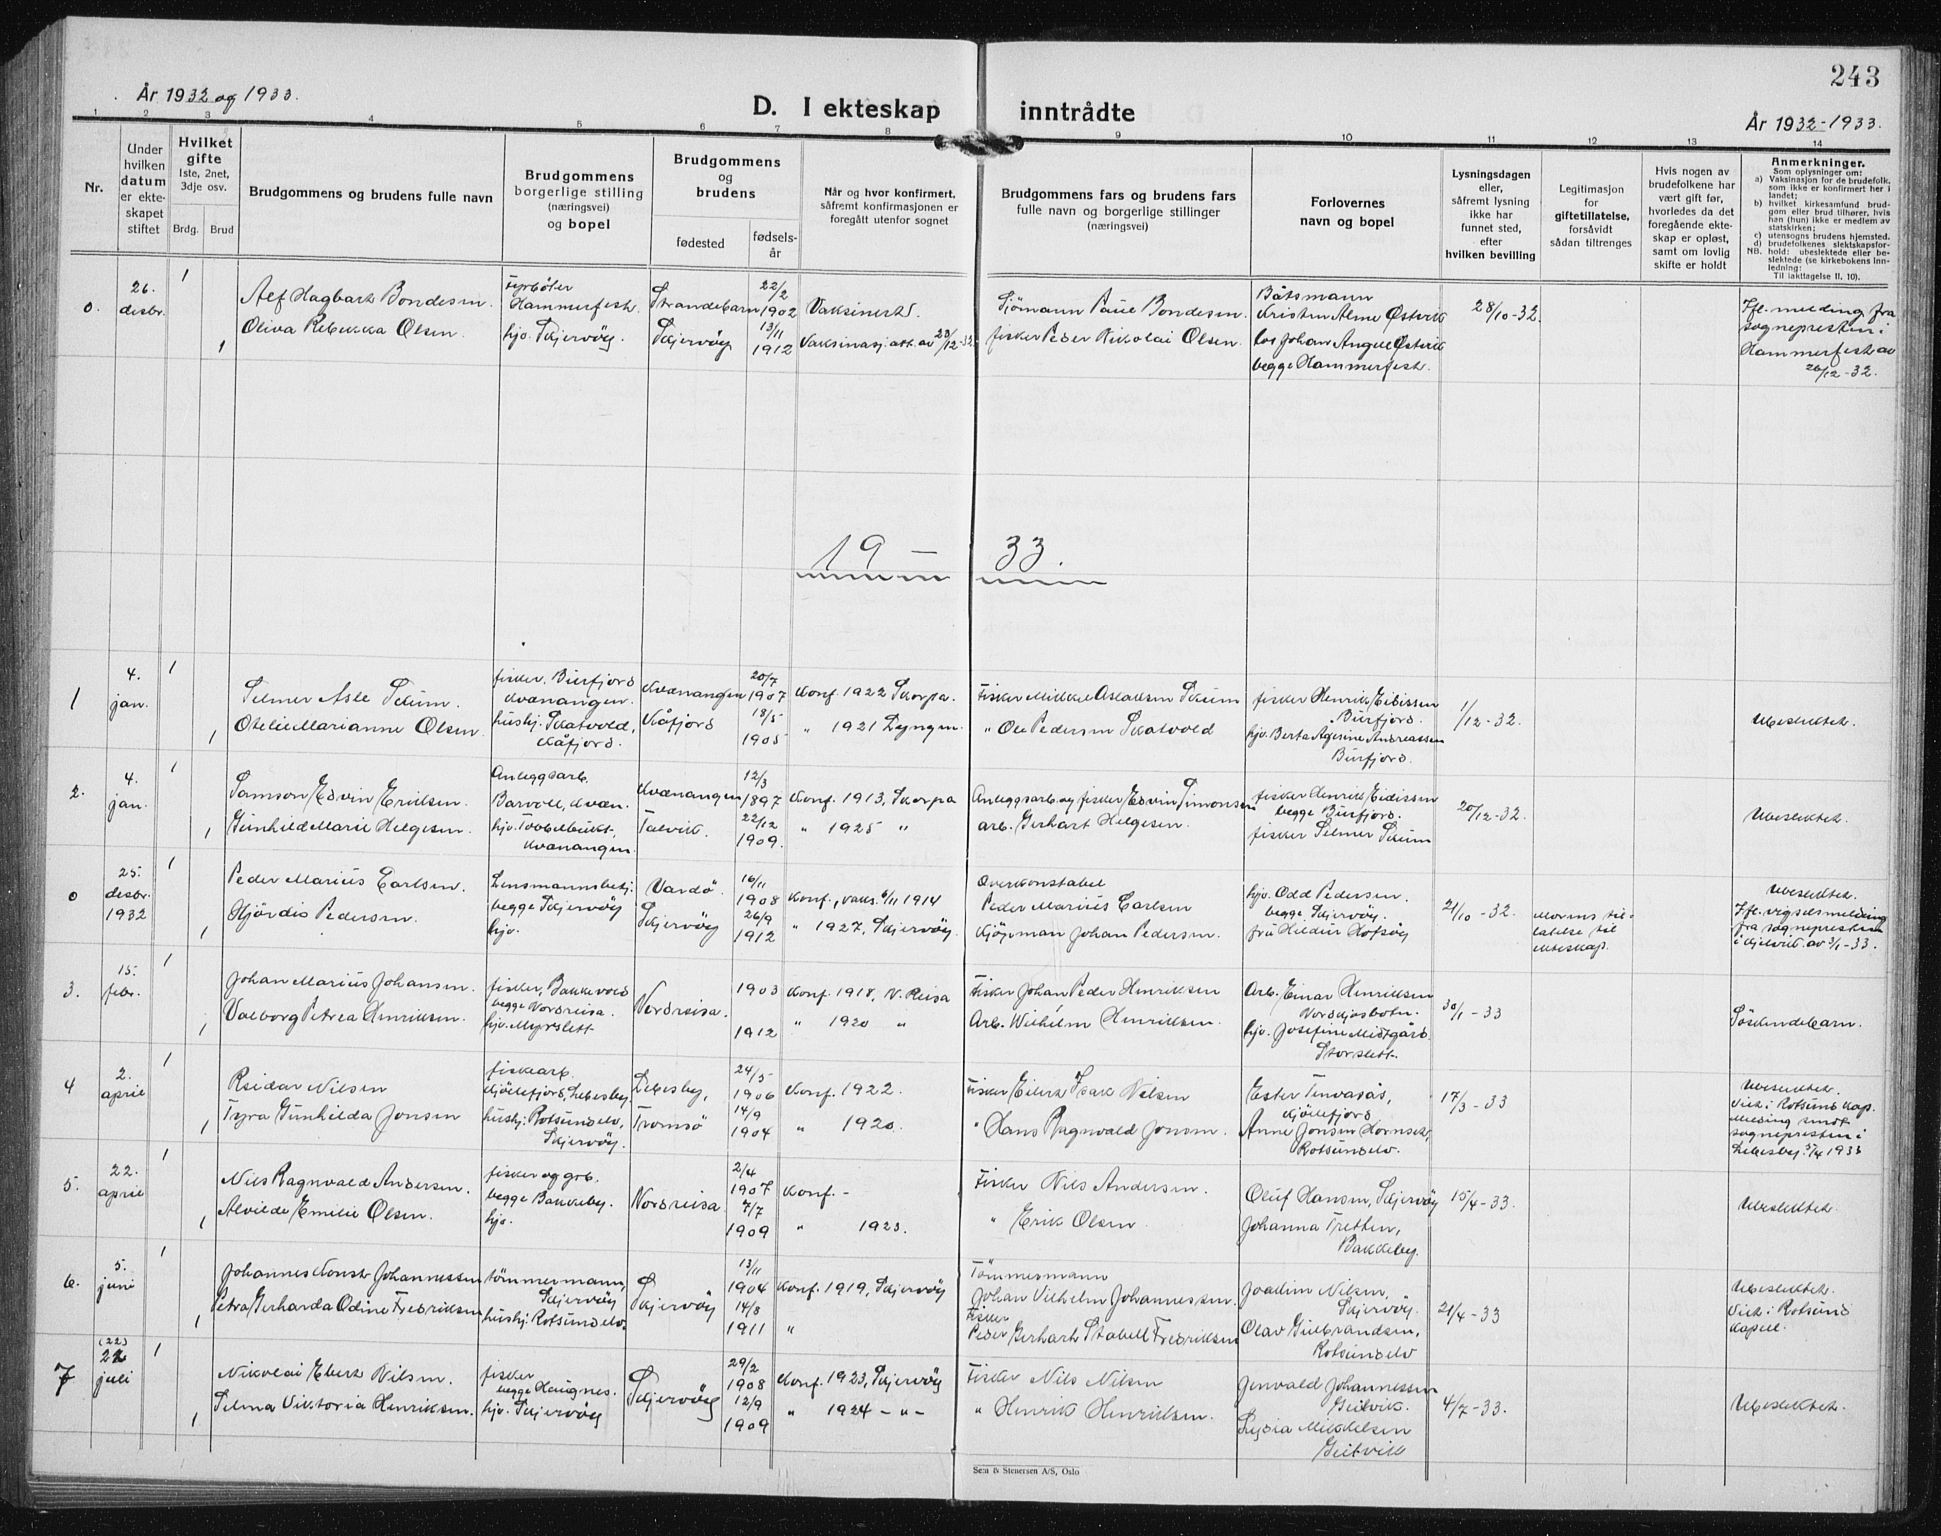 243
År 1932 og 1933.
D. I ekteskap inntrådte
År 1932-1933.
1 2 3 4 5 6 7. 8 9 10 11 12 13 14
Nr.
Under hvilken datum er ekte-skapet stiftet
Hvilket gifte
1ste, 2net, 3dje osv.
Brdg. Brud
Brudgommens og brudens fulle navn
Brudgommens borgerlige stilling (næringsvei) og bopel
Brudgommens og brudens
fødested
fødsels-år
Når og hvor konfirmert, såfremt konfirmasjonen er foregått utenfor sognet
Brudgommens fars og brudens fars fulle navn og borgerlige stillinger (næringsvei)
Forlovernes navn og bopel
Lysningsdagen eller, såfremt lysning ikke har funnet sted, efter hvilken bevilling
Legitimasjon for giftetillatelse, forsåvidt sådan tiltrenges
Hvis nogen av brudefolkene har vært gift før, hvorledes da det foregående ekte-skap er opløst, samt om lovlig skifte er holdt
Anmerkninger.
Som oplysninger om:
a) Vaksinasjon for de brudefolk, som ikke er konfirmert her i landet;
b) hvilket kirkesamfund brud-gom eller brud tilhører, hvis han (hun) ikke er medlem av statskirken;
c) utensogns brudens hjemsted.
d) brudefolkenes slektskapsfor-hold: ubeslektede eller be-slektede (se kirkebokens inn-ledning:
NB.
Til iakttagelse II. 10).
0 26. desbr. 1
Alf Hagbart Bondesen. fyrbøter Hammerfest. Strandebarn 22/2 1902 Vaksinert. Sjømann Paul Bondesen Båtsmann Kristen Alme Østvik 28/10-32. Ifl. melding fra sognepresten i Hammerfest av 26/12-32.
1 Oliva Rebekka Olsen. hjv. Skjervøy. Skjervøy 13/11 1912 Vaksinasj.att. av 23/12-32. fisker Peder Nikolai Olsen. los Johan Angel Østvik begge Hammerfest.
19 — 33.
1 4. jan. 1
Selmer Asle Skum. fisker. Burfjord Kvænangen. Kvænangen 20/7 1907 Konf. 1922 Skorpa. Fisker Mikkel Aslaksen Skum fisker Henrik Eidissen Burfjord. 1/12-32. Ubeslektet.
1 Otelie Marianne Olsen. hushj. Skatvold, Kåfjord. Kåfjord 18/5 1905 " 1921 Lyngen. " Ole Pedersen Skatvold hjv. Berta Agesine Andreassen Burfjord.
2. 4. jan. 1
Samson Edvin Eriksen. Anleggsarb. Barvoll, Kvæn. Kvænangen 12/3 1897 Konf. 1913, Skorpa Anleggsarb. og fisker Edvin Simonsen fisker Henrik Eidissen begge Burfjord. 20/12-32. Ubeslektet.
1 Gunhild Marie Helgesen. hjv. Toppelbukt, Kvænangen. Talvik. 22/12 1909. " 1925 " arb. Gerhart Helgesen. fisker Selmer Skum
0 25. desbr. 1932 1
Peder Marius Carlsen. Lensmannsbetj. begge Skjervøy Vardø. 16/11 1908 Konf., vaks. 6/11 1914 Overkonstabel Peder Marius Carlsen hjv. Odd Pedersen. begge Skjervøy. 21/10-32. Morens til-latelse til ekteskap. Ubeslektet. Ifl. vigselsmelding fra sognepresten i Kjelvik av 3/1-33.
1 Hjørdis Pedersen. hjv. Skjervøy 26/9 1912 " 1927, Skjervøy. Kjøpman Johan Pedersen. fru Heldur Hofsøy
3. 15. febr. 1
Johan Marius Johansen. fisker, Bakkevold begge Nordreisa. Nordreisa. 1903 Konf. 1918, N. Reisa Fisker Johan Peder Henriksen Arb. Einar Henriksen Nordkjosbotn. 30/1-33 Søskendebarn.
1 Valborg Petrea Henriksen. hjv. Myrslett 1912 " 1920 " Arb. Wilhelm Henriksen. hjv. Josefine Midtgård. Storslett.
4 2. april 1
Reidar Nilsen fiskearb. Kjøllefjord, Lebesby Lebesby, 24/5 1906 Konf. 1922. Fisker Eilert Isak Nilsen Ester Tinvasås, Kjøllefjord 17/3-33 Ubeslektet. Viet i Rotsund kap. Melding sendt sognepresten i Lebesby 3/4 1933
1 Tyra Gunhilda Jensen hushj: Rotsundelv, Skjervøy. Tromsø 14/9 1904 " 1920. " Hans Ragnvald Jensen. Anne Jensen Hornset, Rotsundelv.
5. 22. april 1
Nils Ragnvald Andersen. fisker og grb. begge Bakkeby. Nordreisa. 2/4 1907 Konf. - Fisker Nils Andersen. Oluf Hansen, Skjervøy 15/4-33. Ubeslektet.
1 Alvilde Emilie Olsen. hjv. 7/7 1909 " 1923. " Erik Olsen Johanna Tretten, Bakkeby.
6. 5. juni 1
Johannes Konst. Johannessen tømmermann, Skjervøy Skjervøy 13/11 1904 Konf. 1919, Skjervøy Tømmermann Johan Vilhelm Johannessen. Joakim Nilsen, Skjervøy. 21/4-33 Ubeslektet. Viet i Rotsund Kapell.
1 Petra Gerharda Odine Fredriksen hushj: Rotsundelv. 14/8 1911 " Fisker Peder Gerhart Stabell Fredriksen Olav Gulbrandsen, Rotsundelv
7 (22) 22 juli 1
Nikolai Ebert Nilsen. fisker begge Haugnes. Skjervøy 29/2 1908 Konf. 1923, Skjervøy Fisker Nils Nilsen Jenvald Johannessen Geitvik. 4/7-33. Ubeslektet.
1 Selma Viktoria Henriksen. hjv. Skjervøy 12/9 1909 " 1924 -"- " Henrik Henriksen. Lydia Mikkelsen Geitvik
Sem & Stenersen A/S, Oslo